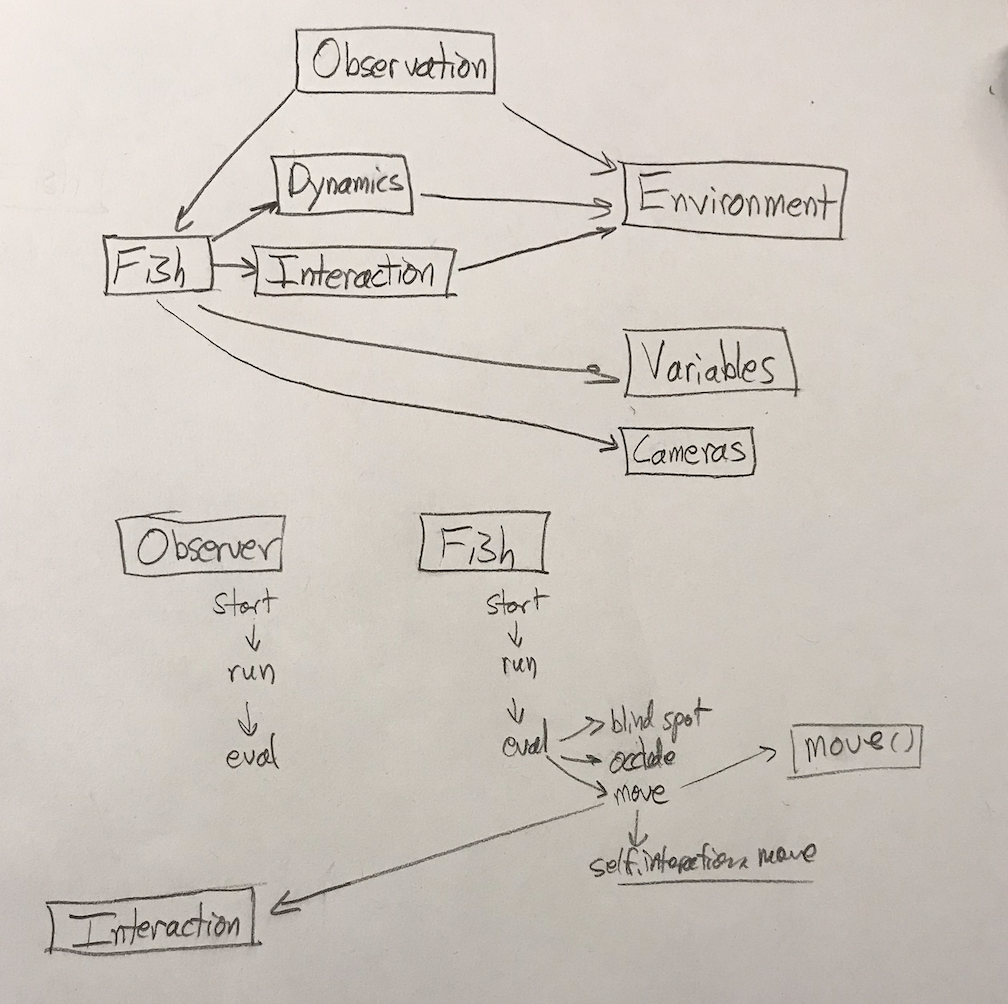 Observation
Dynamics
Environment
Fish
Interaction
Variables
Cameras
Observer
Fish
start
start
run
run
eval
eval
blind spot
occlude
move
move()
self.interaction.move
Interaction